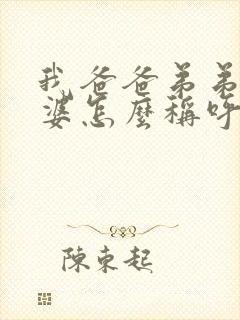 我爸爸弟弟
婆怎麼稱呼
陳東起